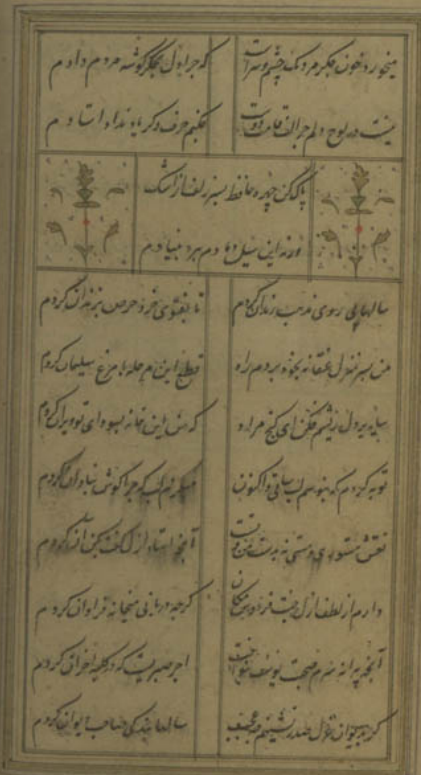 میخورد خون جگر مردمک چشم و سزاست که چرا دل بجگر گوشه مردم دادم
نیست در لوح دلم جز الف قامت دوست چکنم حرف دگر یاد نداد استادم
پاک کن چهره حافظ بسر زلف ز اشک
ورنه این سیل دمادم ببرد بنیادم
سالها پی روی مذهب رندان کردم تا بفتوی خرد حرص بزندان کردم
من بسر منزل عنقا نه بخود بردم راه قطع این مرحله با مرغ سلیمان کردم
سایه بر دل ریشم فکن ای گنج مراد که من این خانه بسودای تو ویران کردم
توبه کردم که نبوسم لب ساقی و اکنون میگزم لب که چرا گوش بنادان کردم
نقش مستوری و مستی نه بدست من و تست آنچه استاد ازل گفت بکن آن کردم
دارم از لطف ازل جنت فردوس گرچه دربانی میخانه فراوان کردم
پیرانه سرم صحبت یوسف بنواخت اجر صبریست که در کلبه احزان کردم
گر بدیوان غزل صدر نشینم چه عجب سالها بندگی صاحب دیوان کردم